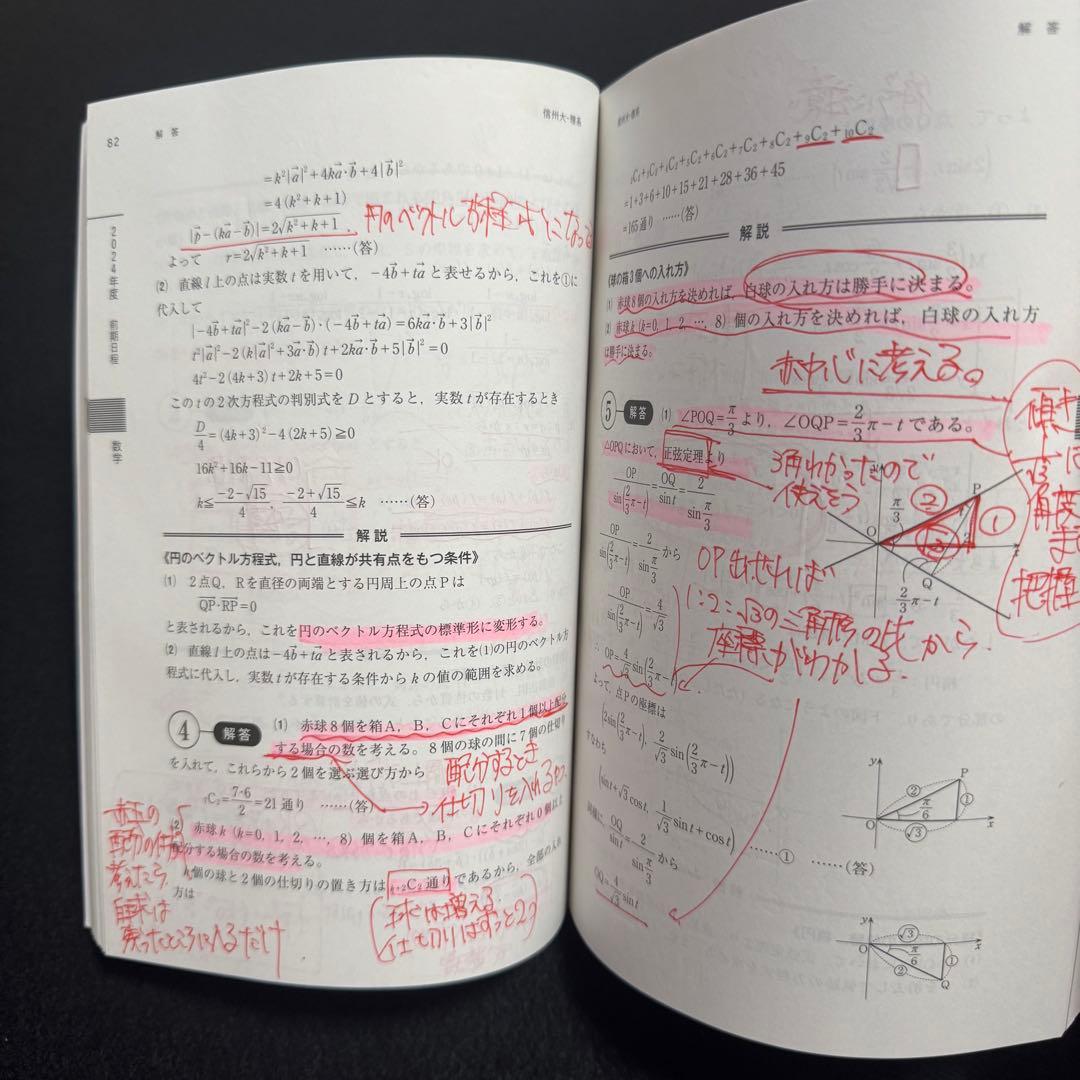 82 解答 信州大-理系
2024年度 前期日程 数学
=k²|a→|²+4ka→・b→+4|b→|²
=4(k²+k+1)
|b→-(ka→-b→)|=2√(k²+k+1)
円のベクトル
よって r=2√(k²+k+1) ……(答)
(2) 直線l上の点は実数tを用いて，-4b→+ta→と表せるから，これを①に
代入して
|-4b→+ta→|²-2(ka→-b→)・(-4b→+ta→)=6ka→・b→+3|b→|²
t²|a→|²-2(k|a→|²+3a→・b→)t+2ka→・b→+5|b→|²=0
4t²-2(4k+3)t+2k+5=0
このtの2次方程式の判別式をDとすると，実数tが存在するとき
D/4=(4k+3)²-4(2k+5)≧0
16k²+16k-11≧0
k≦(-2-√15)/4, (-2+√15)/4≦k ……(答)
解説
《円のベクトル方程式，円と直線が共有点をもつ条件》
(1) 2点Q，Rを直径の両端とする円周上の点Pは
QP→・RP→=0
と表されるから，これを円のベクトル方程式の標準形に変形する。
(2) 直線l上の点は-4b→+ta→と表されるから，これを(1)の円のベクトル方
程式に代入し，実数tが存在する条件からkの値の範囲を求める。
④ 解答 (1) 赤球8個を箱A，B，Cにそれぞれ1個以上配分
する場合の数を考える。8個の球の間に7個の仕切り
を入れて，これらから2個を選ぶ選び方から
配分するとき
仕切りを入れる
₇C₂=7・6/2=21通り ……(答)
(2) 赤球k(k=0，1，2，…，8)個を箱A，B，Cにそれぞれ0個以上
配分する場合の数を考える。
k個の球と2個の仕切りの置き方はₖ₊₂C₂通りであるから，全部の入れ
方は
赤玉の
配分の仕方
考えたら，
白球は
残ったところに入るだけ
球は増える
仕切りはずっと2つ
解答
信州大-理系
₂C₂+₃C₂+₄C₂+₅C₂+₆C₂+₇C₂+₈C₂+₉C₂+₁₀C₂
=1+3+6+10+15+21+28+36+45
=165通り ……(答)
解説
《球の箱3個への入れ方》
(1) 赤球8個の入れ方を決めれば，白球の入れ方は勝手に決まる。
(2) 赤球k(k=0，1，2，…，8)個の入れ方を決めれば，白球の入れ方
は勝手に決まる。
赤中心に考える。
⑤ 解答 (1) ∠POQ=π/3より，∠OQP=2/3π-tである。
△OPQにおいて，正弦定理より
3角わかったので
使えそう
OP/sin(2/3π-t)=OQ/sin t=2/sin π/3
OP/sin(2/3π-t)=2/sin π/3 から
OP/sin(2/3π-t)=4/√3
∴ OP=4/√3 sin(2/3π-t)
OP出せれば
1:2:√3の三角形の比から
座標がわかる
よって，点Pの座標は
(2sin(2/3π-t), 2/√3 sin(2/3π-t))
すなわち
(sin t+√3cos t, 1/√3 sin t+cos t) ……① ……(答)
同様に，OQ/sin t=2/sin π/3 から
OQ=4/√3 sin t
傾き
√3
角度
まで
把握
π/3 ② P ① O Q 2/3π-t
y ② P ① π/6 O √3 x
y √3 O π/6 ① ② Q x